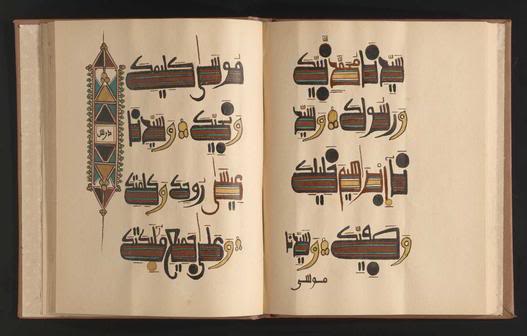 سيدنا محمد نبيك
ورسولك وسيد
نا ابراهيم خليلك
وصفيك وسيدنا
موسى
موسى كليمك
ونجيك وسيدنا
عيسى روحك وكلمتك
وعلى جميع ملئكتك